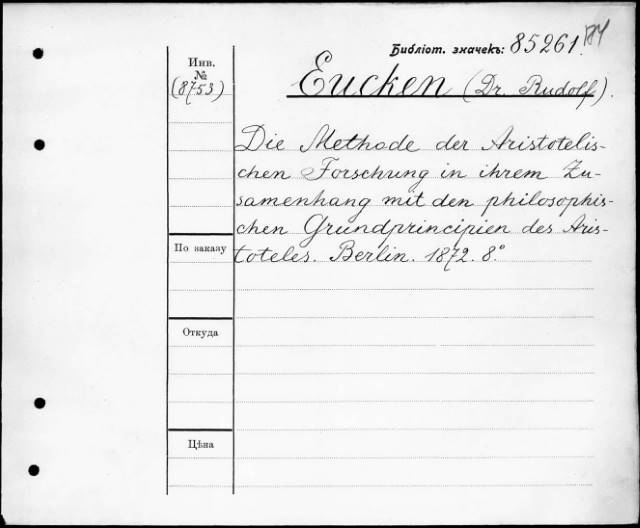 Библіот. значекъ: 85261.
Инв.
№
(8753)
Eucken (Dr. Rudolf).
Die Methode der Aristotelis-
chen Forschung in ihrem Zu-
samenhang mit den philosophis-
chen Grundprincipien des Aris-
toteles. Berlin. 1872. 8.°
По заказу
Откуда
Цѣна